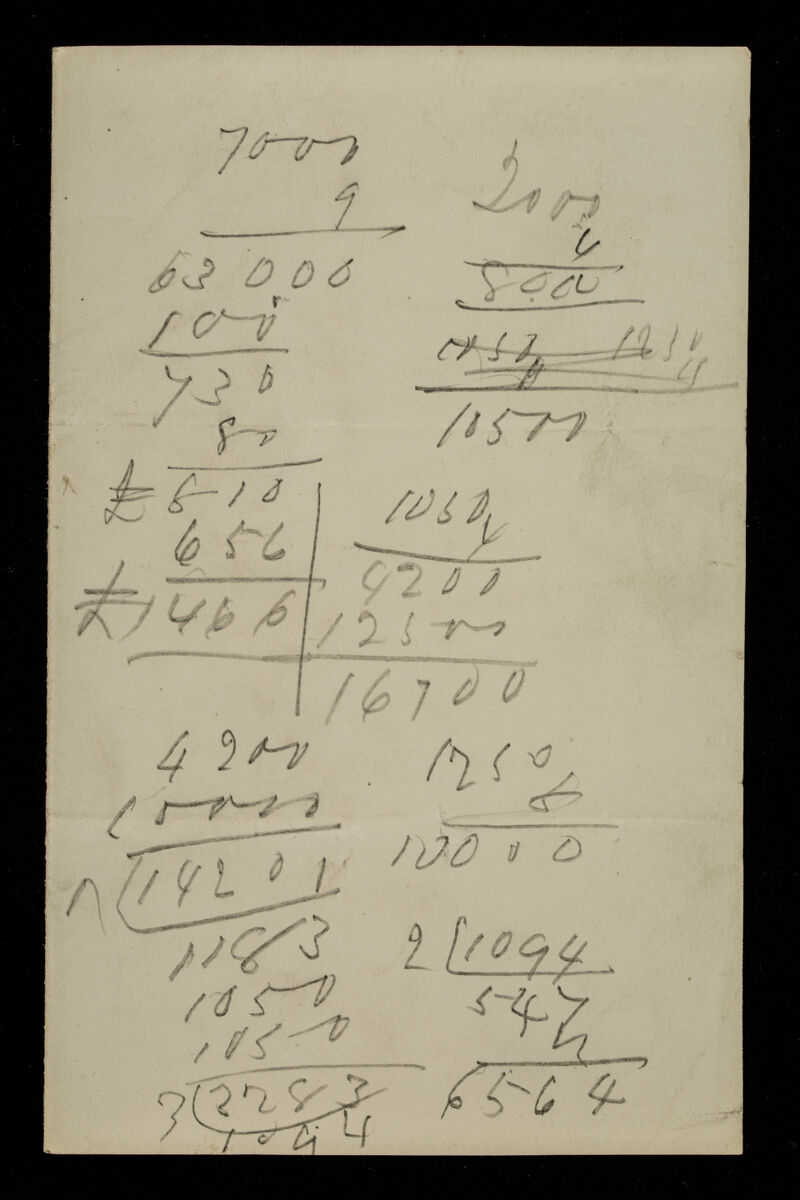 7000
9
63000
100
730
80
£810
656
£1466
4200
10000
12 14201
1183
1050
1050
3 3283
1094
2000
4
8000
1050 1250
10500
1050
4
4200
12500
16700
1250
8
10000
2 1094
547
12
6564